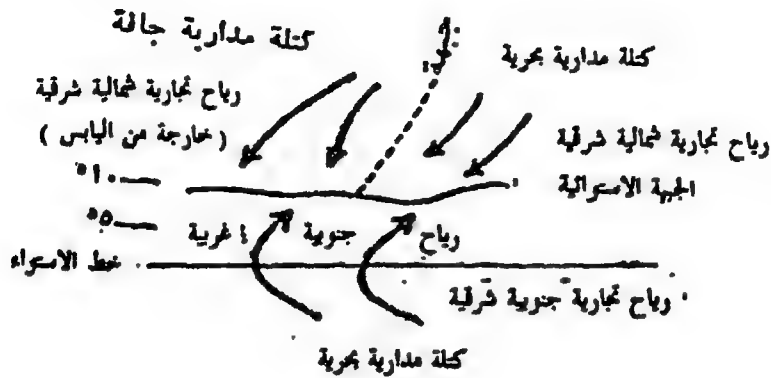 كتلة مدارية جافة
كتلة مدارية بحرية
رياح تجارية شمالية شرقية
(خارجة من اليابس)
رياح تجارية شمالية شرقية
١٠°
الجبهة الاستوائية
٥°
رياح جنوبية غربية
خط الاستواء
رياح تجارية جنوبية شرقية
كتلة مدارية بحرية